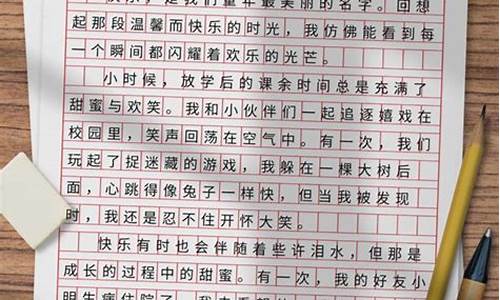 快乐，是我们童年最美丽的名字。回想
起那段温馨而快乐的时光，我仿佛能看到每
一个瞬间都闪耀着欢乐的光芒。
小时候，放学后的课余时间总是充满了
甜蜜与欢笑。我和小伙伴们一起追逐嬉戏在
校园里，笑声回荡在空气中。有一次，我们
玩起了捉迷藏的游戏，我躲在一棵大树后
面，心跳得像兔子一样快，但当我被发现
时，我还是忍不住开怀大笑。
快乐有时也会伴随着些许泪水，但那是
成长的过程中的甜蜜。有一次，我的好友小
明生病住院了，我去看望他